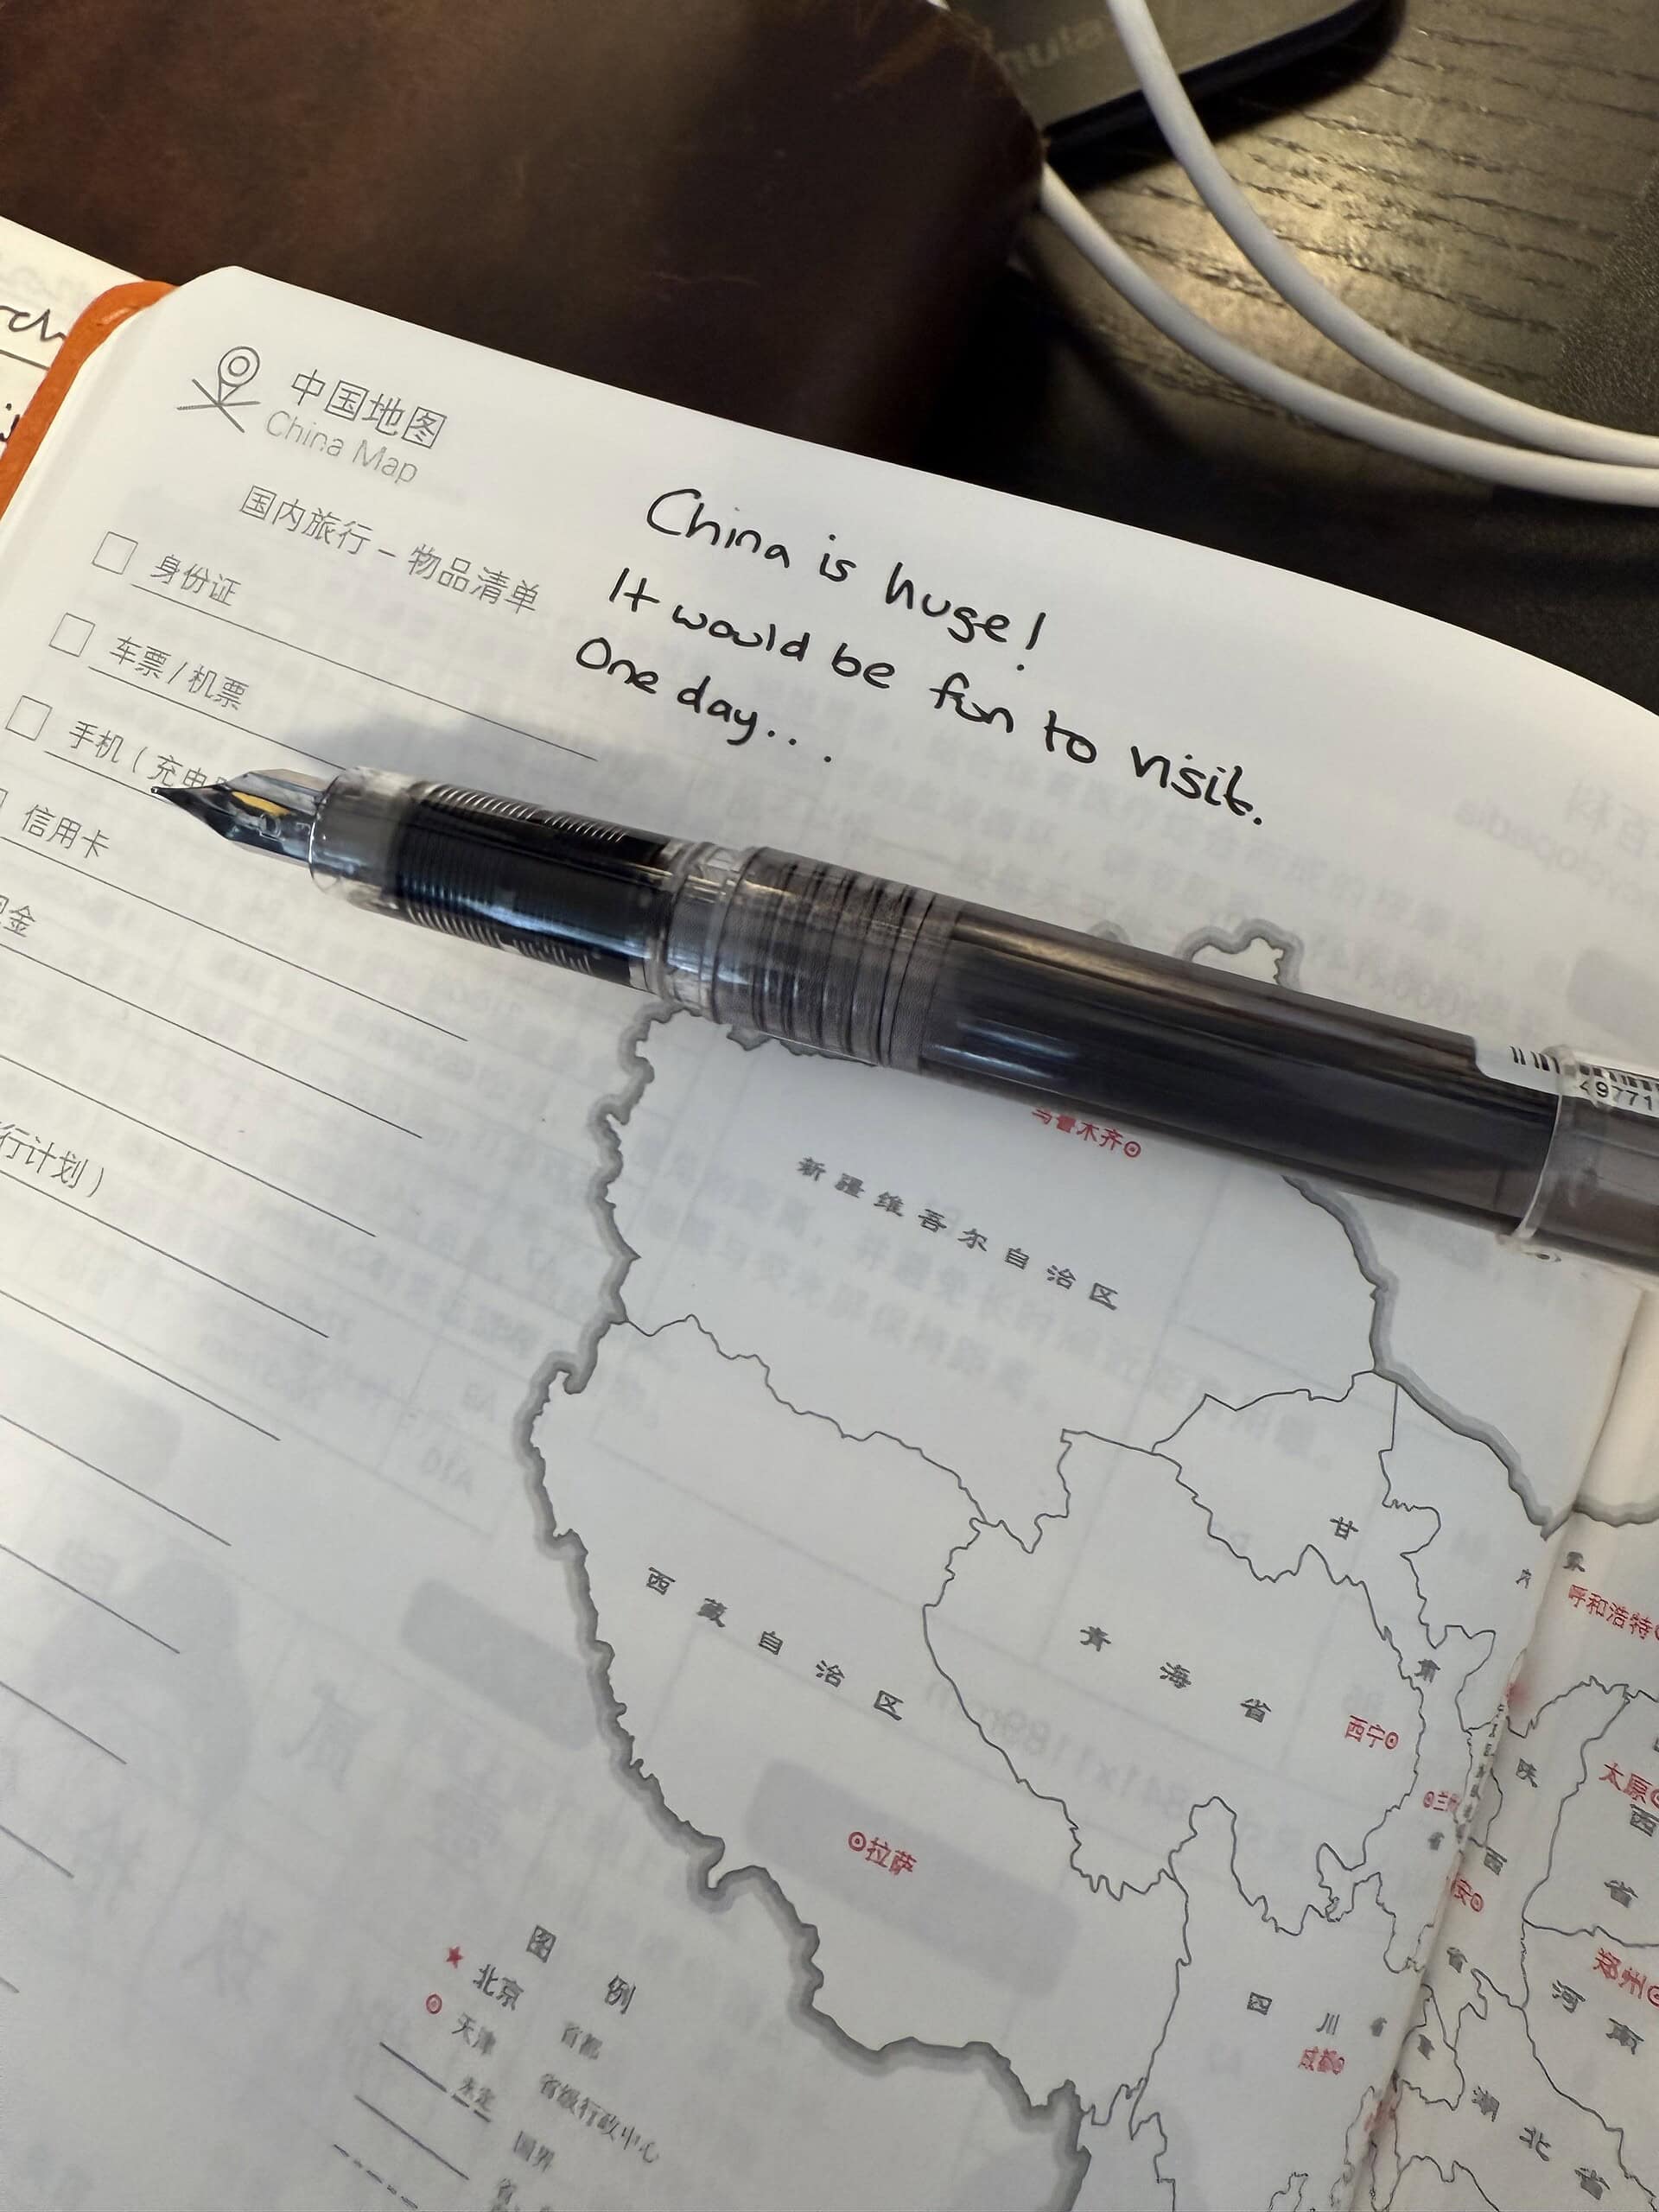 中国地图
China Map
国内旅行 - 物品清单
身份证
车票 / 机票
手机 ( 充电
信用卡
金
行计划 )
China is huge!
It would be fun to visit.
One day....
49771
乌鲁木齐
新疆维吾尔自治区
甘
肃
省
青海省
西宁
西藏自治区
拉萨
四川省
成都
呼和浩特
太原
陕
西
省
西
省
郑州
河南
湖北省
图例
北京
省都
天津
省级行政中心
未定
国界
省